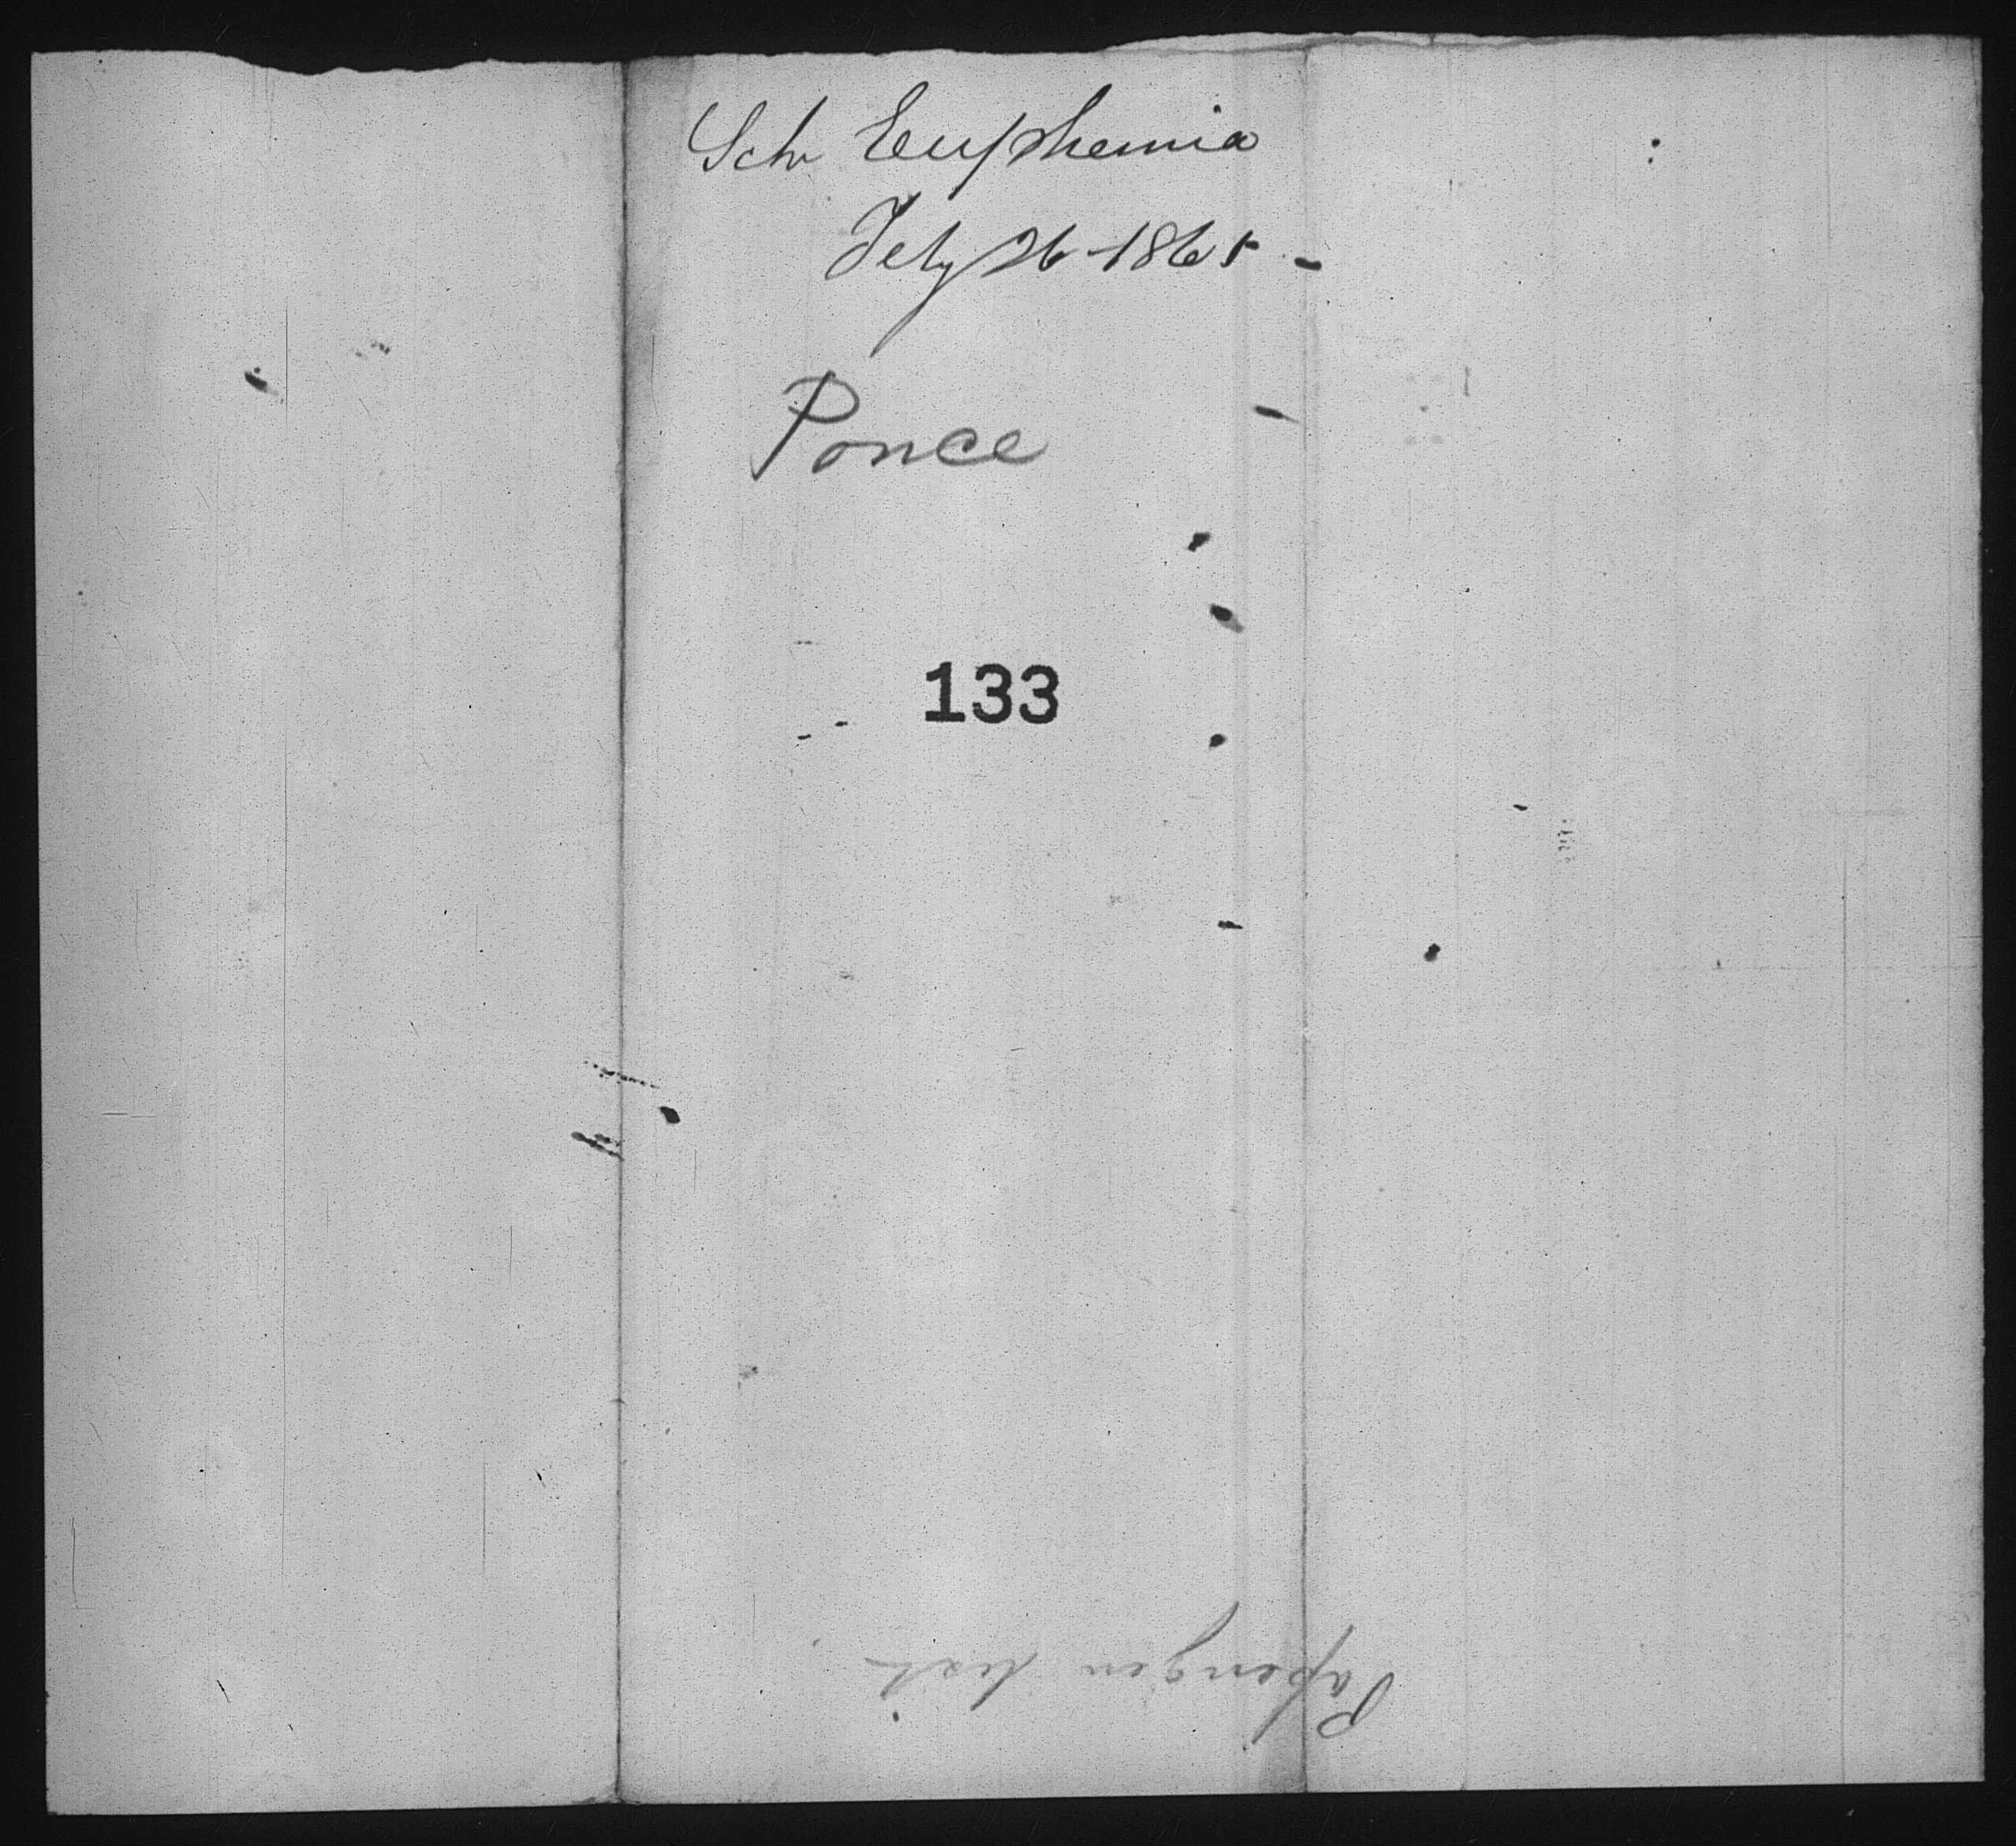 Sch Euphemia
Feby 26 - 1865 -
Ponce
133
Pasengen List